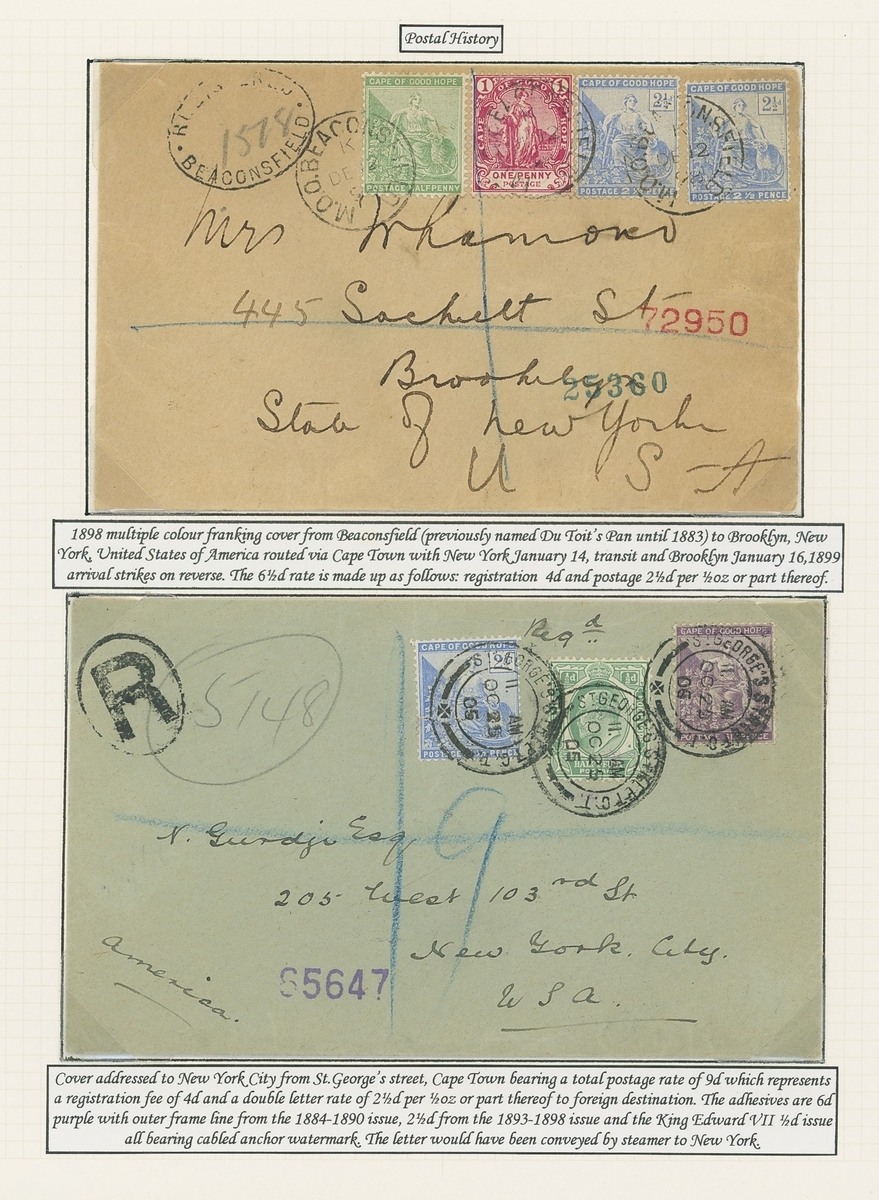 Postal History
REGISTERED
1578
BEACONSFIELD
M.O.O. BEACONSFIELD
DE 12
CAPE OF GOOD HOPE
POSTAGE HALF PENNY
1 1
CAPE OF GOOD HOPE
ONE PENNY
POSTAGE
CAPE OF GOOD HOPE
2½
POSTAGE 2½ PENCE
CAPE OF GOOD HOPE
2½
POSTAGE 2½ PENCE
Mrs Whamond
445 Sackett St
72950
Brooklyn
25360
State of New York
U S A
1898 multiple colour franking cover from Beaconsfield (previously named Du Toit's Pan until 1883) to Brooklyn, New
York, United States of America routed via Cape Town with New York January 14, transit and Brooklyn January 16,1899
arrival strikes on reverse. The 6½d rate is made up as follows: registration 4d and postage 2½d per ½oz or part thereof.
Regd
R
5148
CAPE OF GOOD HOPE
ST GEORGE'S STREET C.T.
11 AM
OC 25
05
½d
HALFPENNY
ST GEORGE'S STREET C.T.
11 AM
OC 25
05
CAPE OF GOOD HOPE
ST GEORGE'S ST
11 AM
OC 25
05
9
N. Gurdji Esq
205 West 103rd St
New York. City.
America.
65647
USA.
Cover addressed to New York City from St.George's street, Cape Town bearing a total postage rate of 9d which represents
a registration fee of 4d and a double letter rate of 2½d per ½oz or part thereof to foreign destination. The adhesives are 6d
purple with outer frame line from the 1884-1890 issue, 2½d from the 1893-1898 issue and the King Edward VII ½d issue
all bearing cabled anchor watermark. The letter would have been conveyed by steamer to New York.